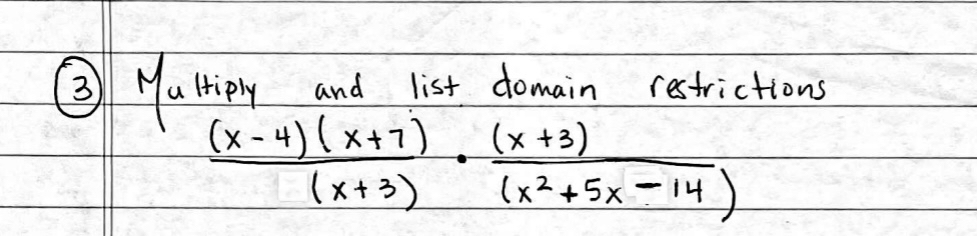 ③ Multiply and list domain restrictions
(x - 4)(x+7) / (x+3) • (x +3) / (x² + 5x - 14)